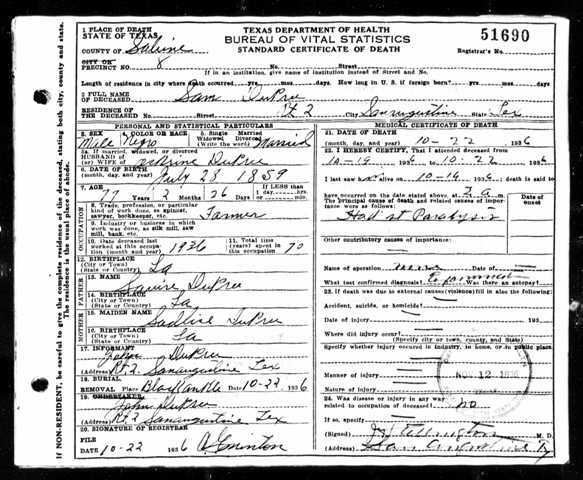 TEXAS DEPARTMENT OF HEALTH
BUREAU OF VITAL STATISTICS
STANDARD CERTIFICATE OF DEATH
51690
Registrar's No.
1 PLACE OF DEATH
STATE OF TEXAS
COUNTY OF Sabine
CITY OR PRECINCT NO. 8 No. Street
If in an institution, give name of institution instead of Street and No.
Length of residence in city where death occurred yrs. mos. days. How long in U. S. if foreign born? yrs. mos. days
2 FULL NAME OF DECEASED Sam DuPree
RESIDENCE OF THE DECEASED No. Rt 2 City San Augustine State Tex
PERSONAL AND STATISTICAL PARTICULARS
3. SEX 4. COLOR OR RACE 5. Single Married Widowed Divorced (Write the word)
Male Negro Married
5a. If married, widowed or divorced
HUSBAND of
(or) WIFE of DuPree
6. DATE OF BIRTH July 28 1859
(month, day, and year)
7. AGE Years Months Days If less than 1 day
77 2 26 hrs. min.
OCCUPATION
8. Trade, profession, or particular kind of work done, as spinner, sawyer, bookkeeper, etc. Farmer
9. Industry or business in which work was done, as silk mill, saw mill, bank, etc.
10. Date deceased last worked at this occupation (month and year) 1936
11. Total time (years) spent in this occupation 70
12. BIRTHPLACE
(City or Town)
(State or Country) La
FATHER
13. NAME Squire DuPree
14. BIRTHPLACE
(City or Town)
(State or Country) La
MOTHER
15. MAIDEN NAME DuPree
16. BIRTHPLACE
(City or Town)
(State or Country) La
17. INFORMANT John DuPree
(Address) Rt 2. San Augustine Tex
18. BURIAL
REMOVAL Place Date 10-22 1936
19. UNDERTAKER John DuPree
(Address) Rt 2 San Augustine Tex
20. SIGNATURE OF REGISTRAR
FILE
10-22 1936
MEDICAL CERTIFICATE OF DEATH
21. DATE OF DEATH
(month, day, and year) 10-22 1936
22. I HEREBY CERTIFY, That I attended deceased from
10-19 1936 to 10-22 1936
I last saw h alive on 10-19 1936 death is said to
have occurred on the date stated above, at 3 a m.
The principal cause of death and related causes of importance were as follows:
Date of onset
Had st Paralysis
Other contributory causes of importance:
Name of operation none Date of
What test confirmed diagnosis? Was there an autopsy?
23. If death was due to external causes (violence) fill in also the following:
Accident, suicide, or homicide?
Date of injury 193
Where did injury occur?
(Specify city or town, county, and State)
Specify whether injury occurred in industry, in home, or in public place.
Manner of injury
Nature of injury
NOV 12 1936
24. Was disease or injury in any way related to occupation of deceased? no
If so, specify
(Signed) M. D.
(Address) San Augustine Tx
If NON-RESIDENT, be careful to give the residence of the deceased, stating both city, county and state.
The residence is the usual place of abode.